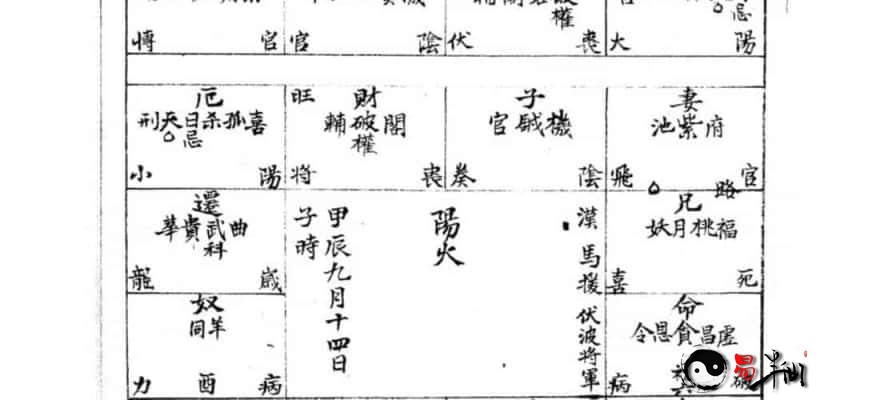 權
忌
博 官
官 陰
伏 喪
大 陽
厄
刑天日殺孤喜
忌
小 陽
旺 財
輔破閣
權
將 喪
子
官馘機
奏 陰
妻
池紫府
飛 官
遷
華貴武曲
科
龍 歲
奴
同羊
力 酉 病
甲辰九月十四日
子時
陽火
漢馬援伏波將軍
路
兄
妖月桃福
喜 死
命
令恩貪昌虛
病 破
易半仙